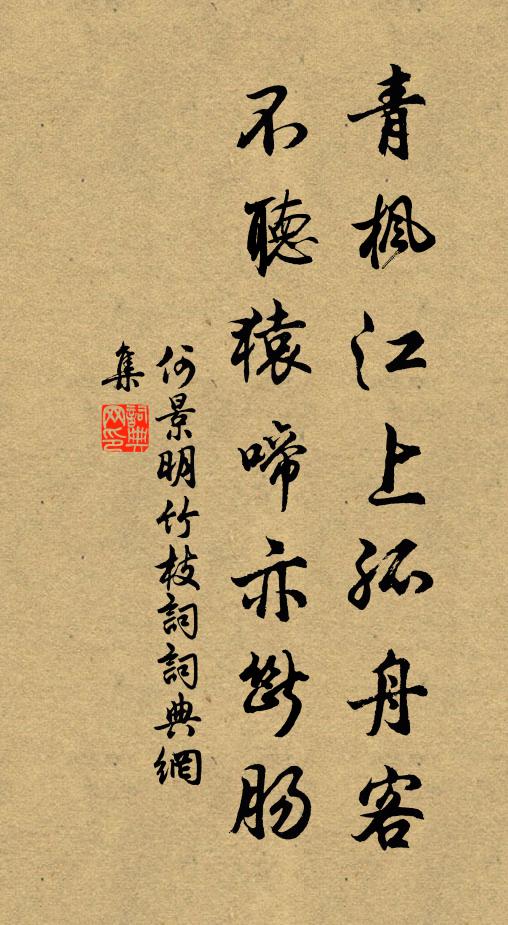 青楓江上孤舟客
不聽猿啼亦斷腸
何景明竹枝詞詞典網
集
詞典网印